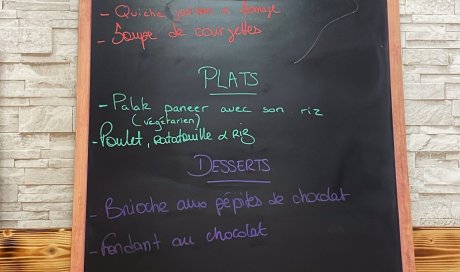 - Quiche jambon & fromage
- Soupe de courgettes
PLATS
- Palak paneer avec son riz
(végétarien)
- Poulet, Ratatouille & Riz
DESSERTS
- Brioche aux pépites de chocolat
- Fondant au chocolat